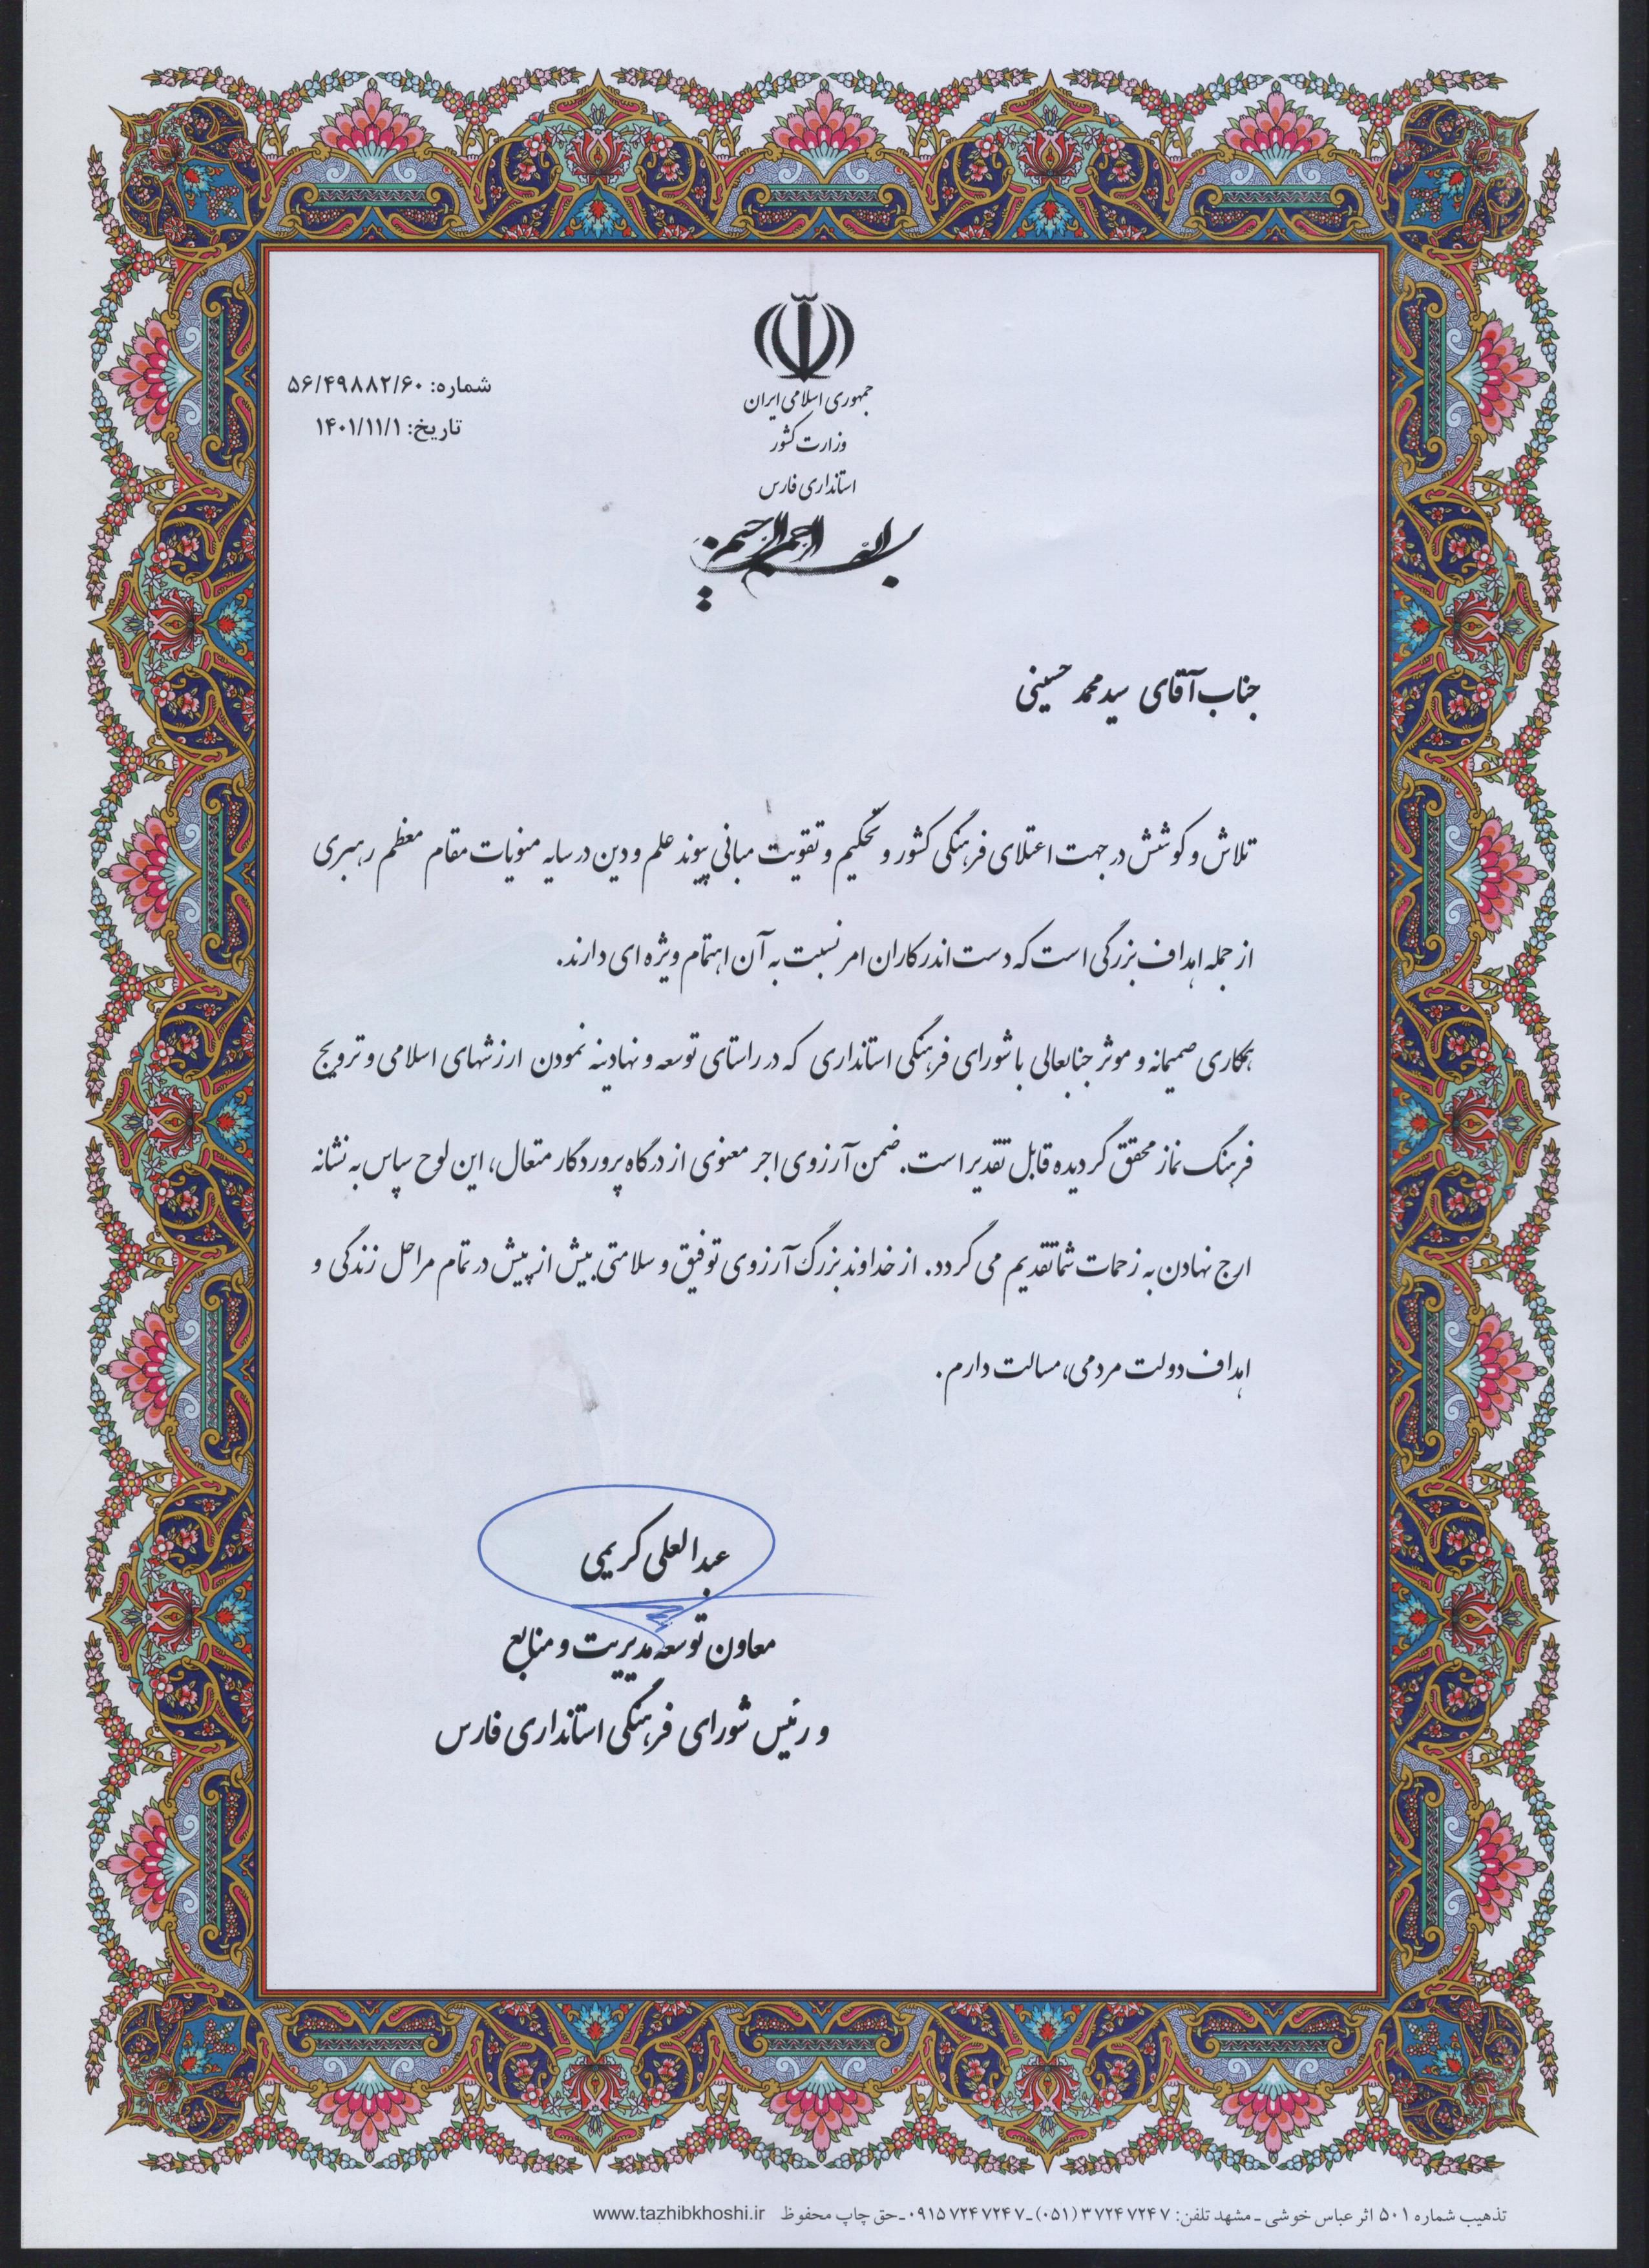 جمهوری اسلامی ایران
وزارت کشور
استانداری فارس
شماره: ۵۶/۴۹۸۸۲/۶۰
تاریخ: ۱۴۰۱/۱۱/۱
بسم الله الرحمن الرحیم
جناب آقای سید محمد حسینی
تلاش و کوشش در جهت اعتلای فرهنگی کشور و تحکیم و تقویت مبانی پیوند علم و دین در سایه منویات مقام معظم رهبری
از جمله اهداف بزرگی است که دست اندرکاران امر نسبت به آن اهتمام ویژه ای دارند.
همکاری صمیمانه و موثر جنابعالی با شورای فرهنگی استانداری که در راستای توسعه و نهادینه نمودن ارزشهای اسلامی و ترویج
فرهنگ نماز محقق گردیده قابل تقدیر است. ضمن آرزوی اجر معنوی از درگاه پروردگار متعال، این لوح سپاس به نشانه
ارج نهادن به زحمات شما تقدیم می گردد. از خداوند بزرگ آرزوی توفیق و سلامتی بیش از پیش در تمام مراحل زندگی و
اهداف دولت مردمی، مسالت دارم.
عبدالعلی کریمی
معاون توسعه مدیریت و منابع
و رئیس شورای فرهنگی استانداری فارس
تذهیب شماره ۵۰۱ اثر عباس خوشی ـ مشهد تلفن: ۳۷۲۴۷۲۴۷ (۰۵۱) ـ ۰۹۱۵۷۲۴۷۲۴۷ ـ حق چاپ محفوظ www.tazhibkhoshi.ir